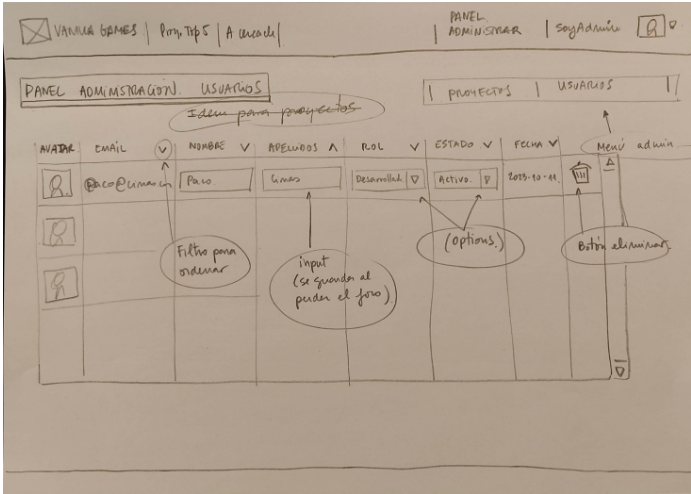 VANILLA GAMES | Proy. Top 5 | Acerca de |
PANEL ADMINISTRAR | SoyAdmin
PANEL ADMINISTRACIÓN. USUARIOS
Idem para proyectos
| PROYECTOS | USUARIOS |
Menú admin
AVATAR EMAIL NOMBRE APELLIDOS ROL ESTADO FECHA
Paco Desarrollad. Activo. 2023-10-11
Filtro para
ordenar
input
(se guarda al
perder el foco)
(options.)
Botón eliminar.